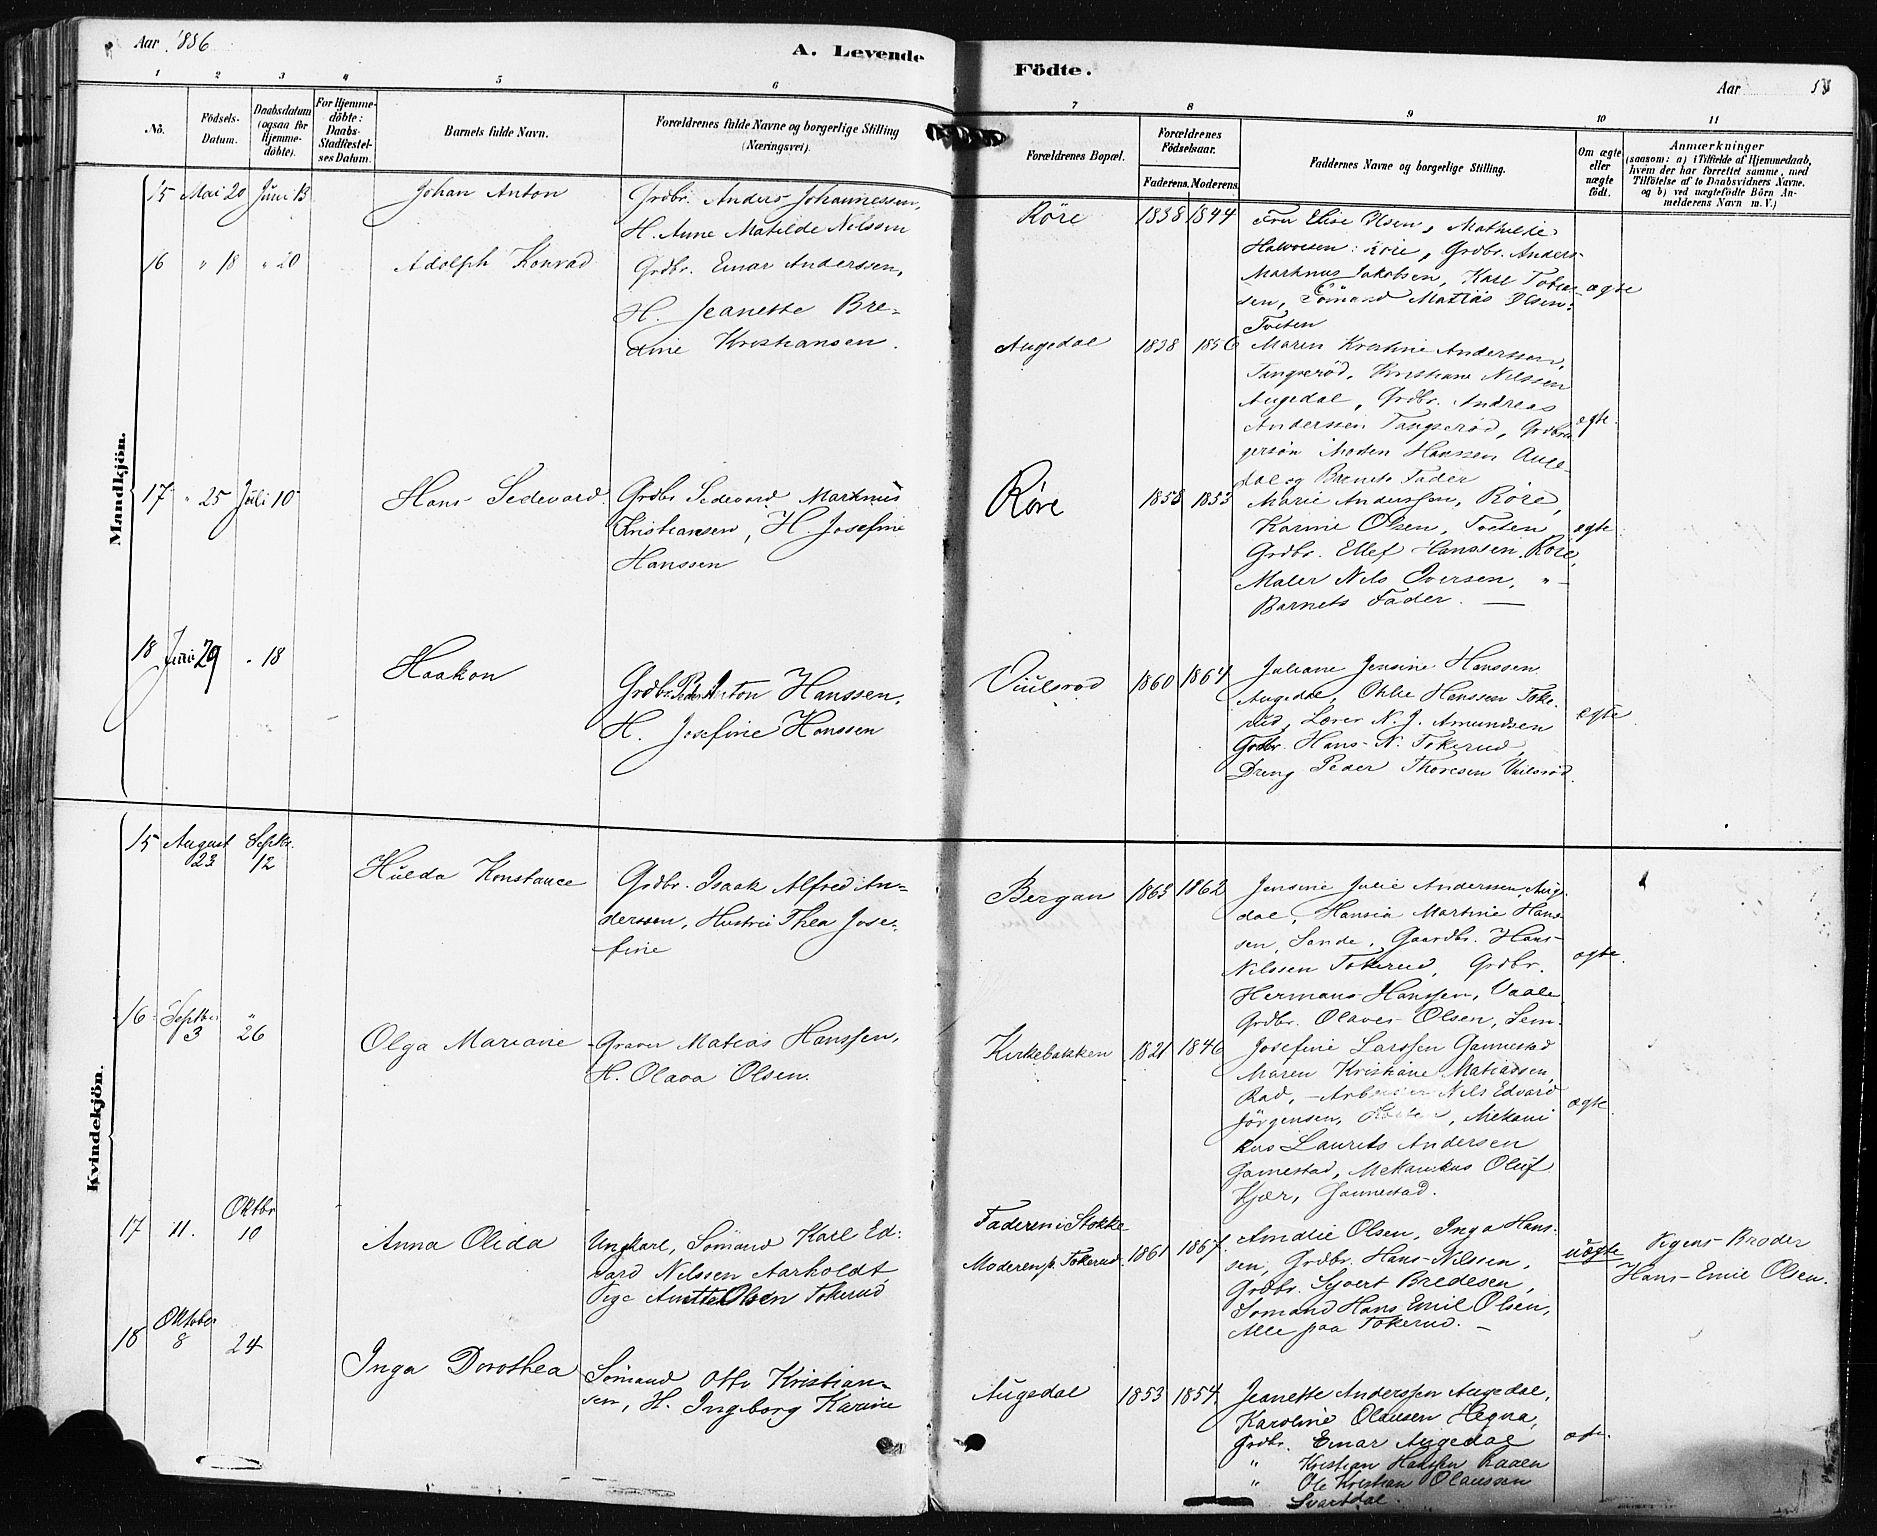 Aar 1886
A. Levende
Födte.
Aar
1
2
3
4
5
6
7
8
9
10
11
No.
Födsels-
Datum.
Daabsdatum
(ogsaa for
Hjemme-
døbte).
For Hjemme-
døbte:
Daabs-
Stadfæstel-
ses Datum.
Barnets fulde Navn.
Forældrenes fulde Navne og borgerlige Stilling
(Næringsvei).
Forældrenes Bopæl.
Forældrenes
Födselsaar.
Faderens.
Moderens.
Faddernes Navne og borgerlige Stilling.
Om ægte
eller
uægte
födt.
Anmærkninger
(saasom: a) i Tilfælde af Hjemmedaab,
hvem der har forrettet samme, med
Tilföielse af to Daabsvidners Navne.
og b) ved uægtefödte Börn An-
melderens Navn m. V.)
Mandkjön.
15 Mai 20 Juni 13
Johan Anton
Grdbr. Anders Johannessen,
H. Anne Matilde Nilssen
Röre
1838 1844
Fru Elise Olsen, Mathilde
Halvorsen: Röre, Grdbr. Anders
Marknus Jakobsen, Karl Tobias-
sen, Sömand Matias Olsen:
Tveten
ægte
16 " 18 " 20
Adolph Konrad
Grdbr. Einar Anderssen,
H. Jeanette Bre-
dine Kristiansen.
Augedal
1838 1856
Maren Kristine Anderssen,
Tangseröd, Kristiane Nilssen
Augedal, Grdbr. Andreas
Anderssen Tangseröd, Grdbru-
gersön Morten Hanssen Auge-
dal og Barnets Fader
ægte.
17 " 25 Juli 10
Hans Sedevard
Grdbr Sedevard Marknus
Kristiansen, H Josefine
Hanssen
Röre
1858 1853
Marie Anderssen, Röre,
Karine Olsen, Tveten
Grdbr. Ellef Hanssen, Röre,
Maler Nils Iversen, "
Barnets Fader. —
ægte
18 Juni 29 " 18
Haakon
Grdbr. Peder Anton Hanssen,
H. Josefine Hanssen
Viulsrød
1860 1864
Juliane Jensine Hanssen
Augedal, Oklie Hanssen Toke-
rud, Lærer N. J. Amundsen
Grdbr. Hans N. Tokerud,
Dreng Peder Thoresen Viulsröd.
ægte
Kvindekjön.
15 August
23
Septbr.
12
Hulda Konstance
Grdbr. Isaak Alfred An-
derssen, Hustru Thea Jose-
fine
Bergan
1863 1862
Jensine Julie Anderssen, Auge-
dal, Hansia Martine Hans-
sen, Sande, Gaardbr. Hans
Nilssen Tokerud, Grdbr.
Hermans Hanssen, Vaale
Grdbr. Olaves Olsen, Sem.
ægte.
16 Septbr.
3
"
26
Olga Mariane
Graver Matias Hanssen,
H. Olava Olsen.
Kirkebakken
1821 1846
Josefine Larssen Gannestad
Maren Kristiane Matiassen,
Rad, Arbeider Nils Edvard
Jörgensen, , Mekani
kus Laurits Andersen
Gannestad, Mekanikus Oluf
Kjær, Gannestad.
ægte
17 11.
Oktbr
10
Anna Olida
Ungkarl, Sömand Karl Ed-
vard Nilssen Aarholdt,
Pige Anette Olsen Tokerud
Faderen i Stokke
Moderen p. Tokerud
1861 1867.
Amalie Olsen, Inga Hans-
sen, Grdbr. Hans Nilssen,
Grdbr. Sjovert Bredesen,
Sömand Hans Emil Olsen,
Alle paa Tokerud. —
uægte
Pigens Broder
Hans Emil Olsen.
18 Oktober
8
24
Inga Dorothea
Sömand Otto Kristian-
sen, H. Ingeborg Karine
Augedal
1853 1854.
Jeanette Anderssen Augedal,
Karoline Olaussen Hegna,
Grdbr. Einar Augedal
" Kristian Hanssen Raaen
" Ole Kristian Olaussen
Svartdal.